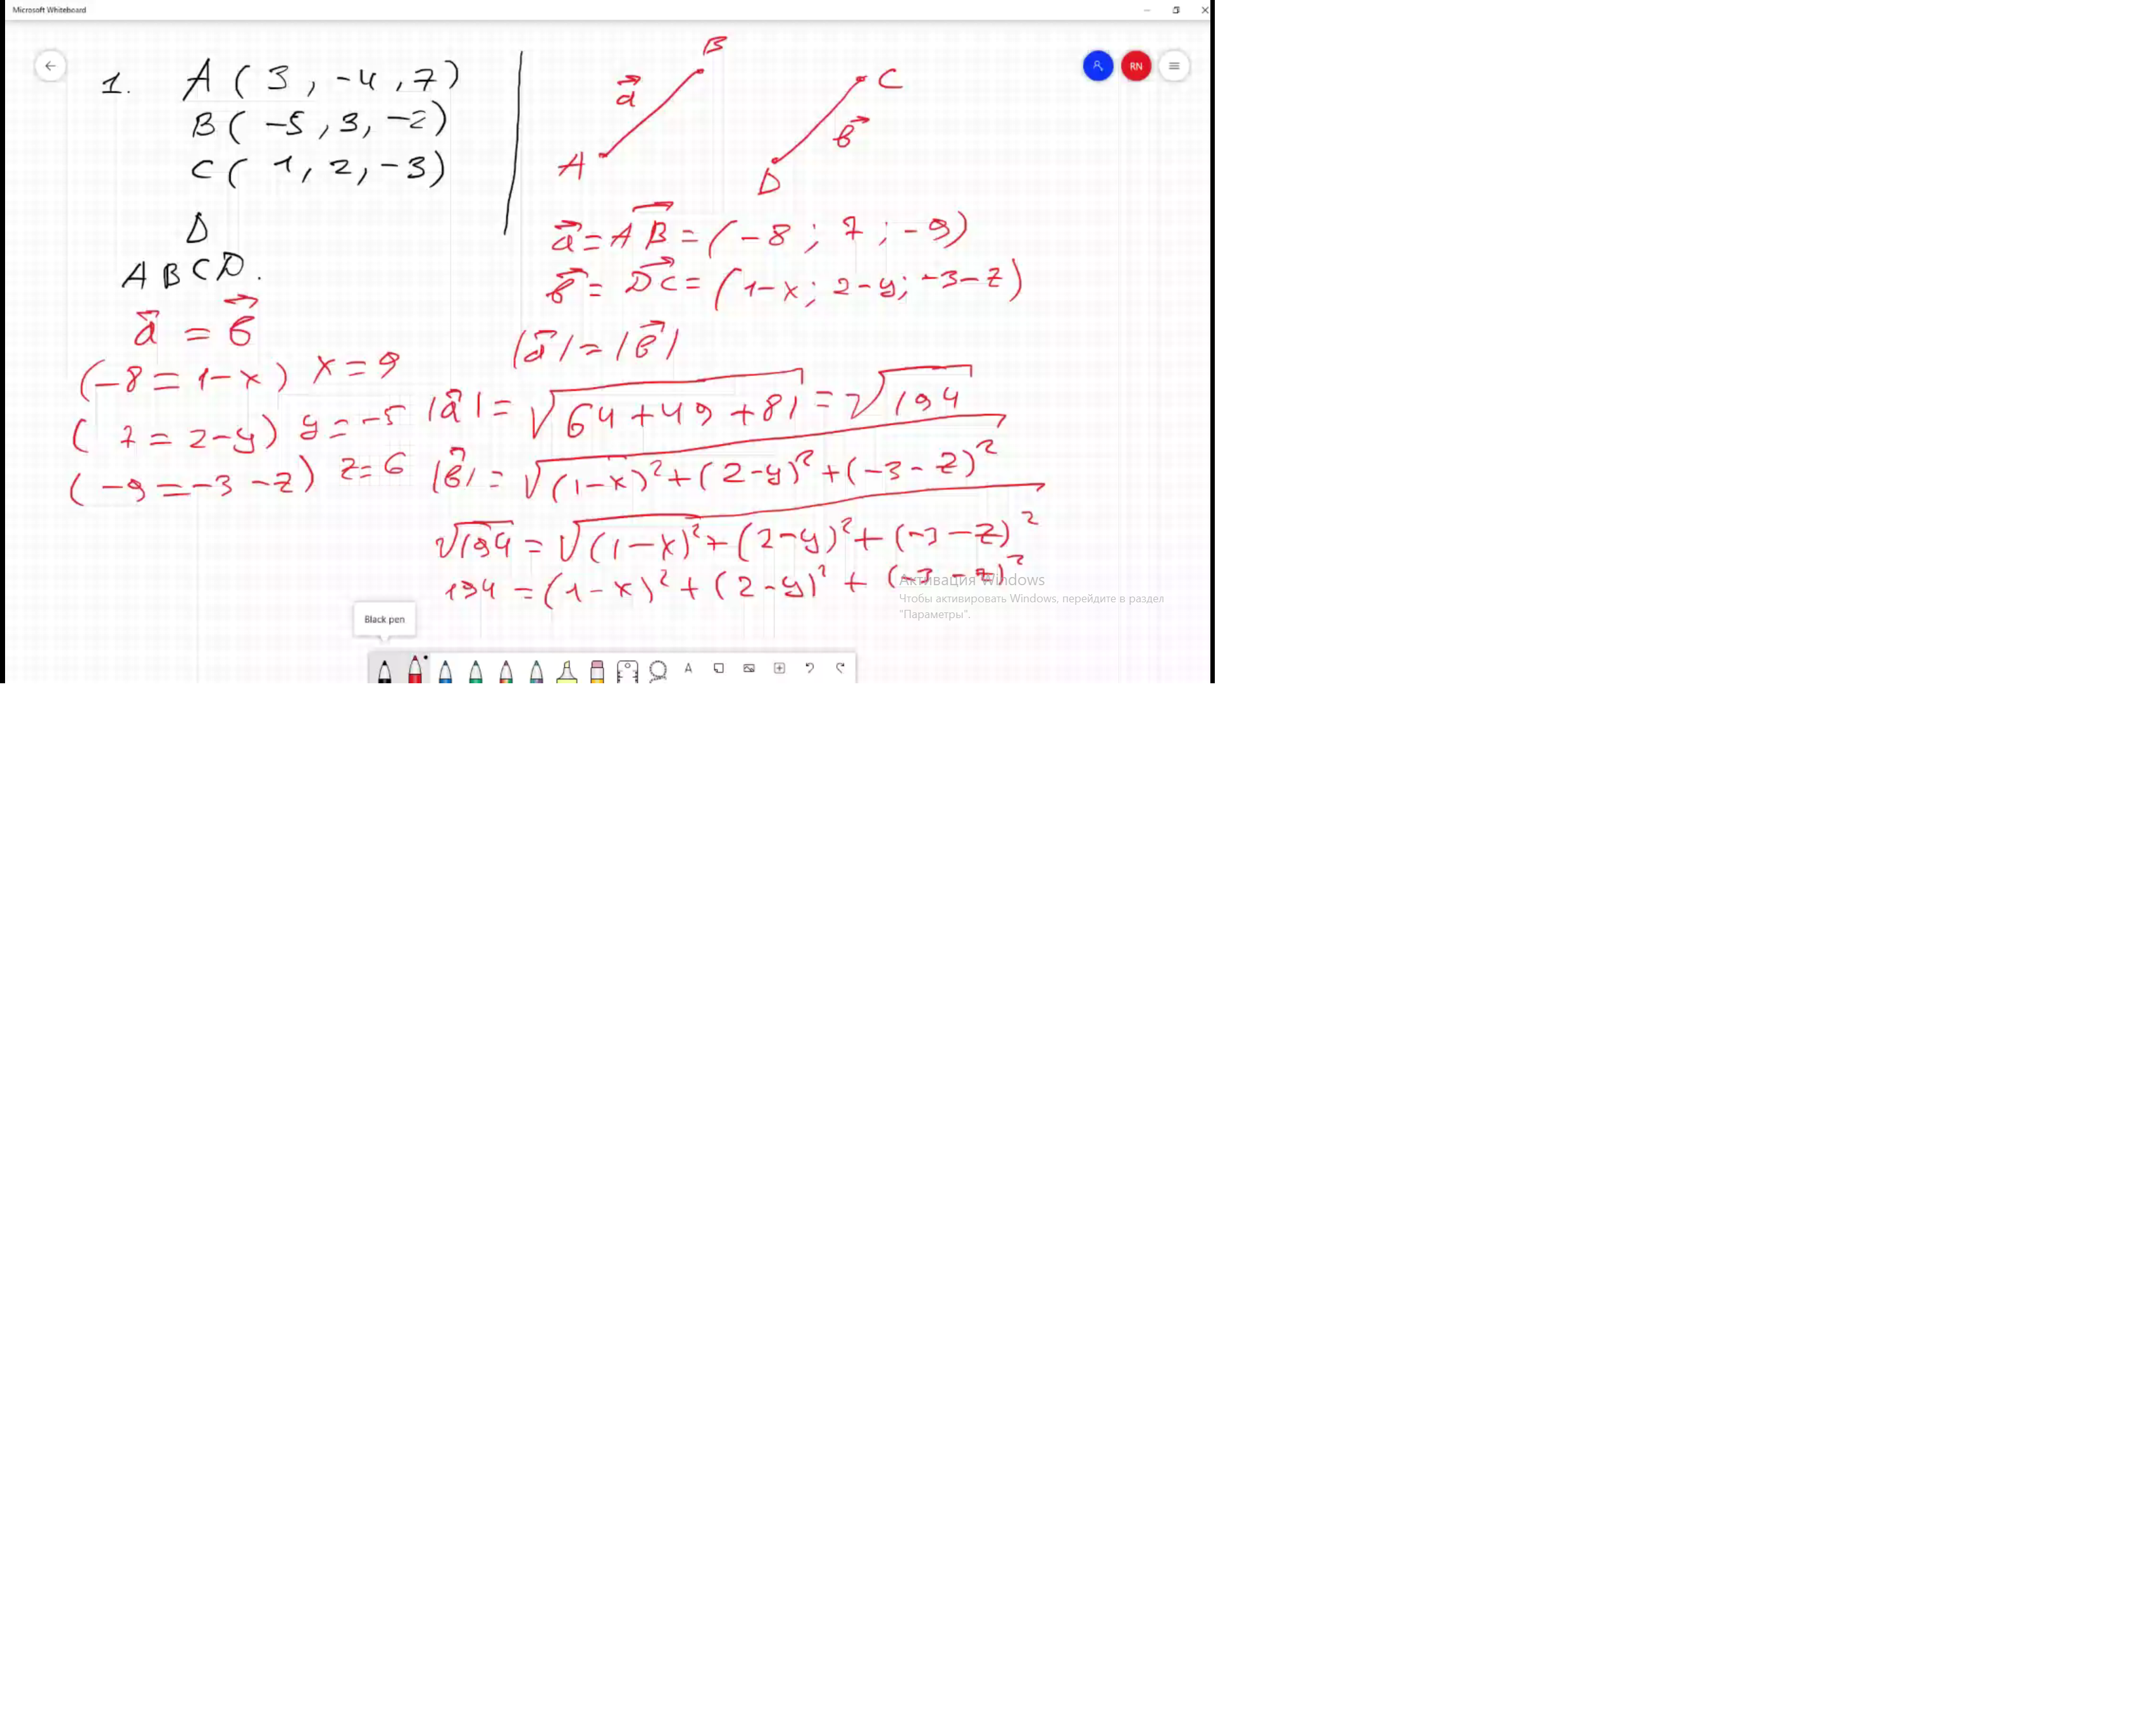 Microsoft Whiteboard
RN
1. A ( 3 , -4 , 7 )
B ( -5 , 3 , -2 )
C ( 1 , 2 , -3 )
D
A B C D .
a⃗ = в⃗
( -8 = 1 - x ) x = 9
( 7 = 2 - y ) y = -5
( -9 = -3 - z ) z = 6
B
a⃗
A
C
в⃗
D
a⃗ = AB⃗ = ( -8 ; 7 ; -9 )
в⃗ = DC⃗ = ( 1 - x ; 2 - y ; -3 - z )
|a⃗| = |в⃗|
|a⃗| = √(64 + 49 + 81) = √194
|в⃗| = √((1 - x)² + (2 - y)² + (-3 - z)²)
√194 = √((1 - x)² + (2 - y)² + (-3 - z)²)
194 = (1 - x)² + (2 - y)² + (-3 - z)²
Активация Windows
Чтобы активировать Windows, перейдите в раздел
"Параметры".
Black pen
A